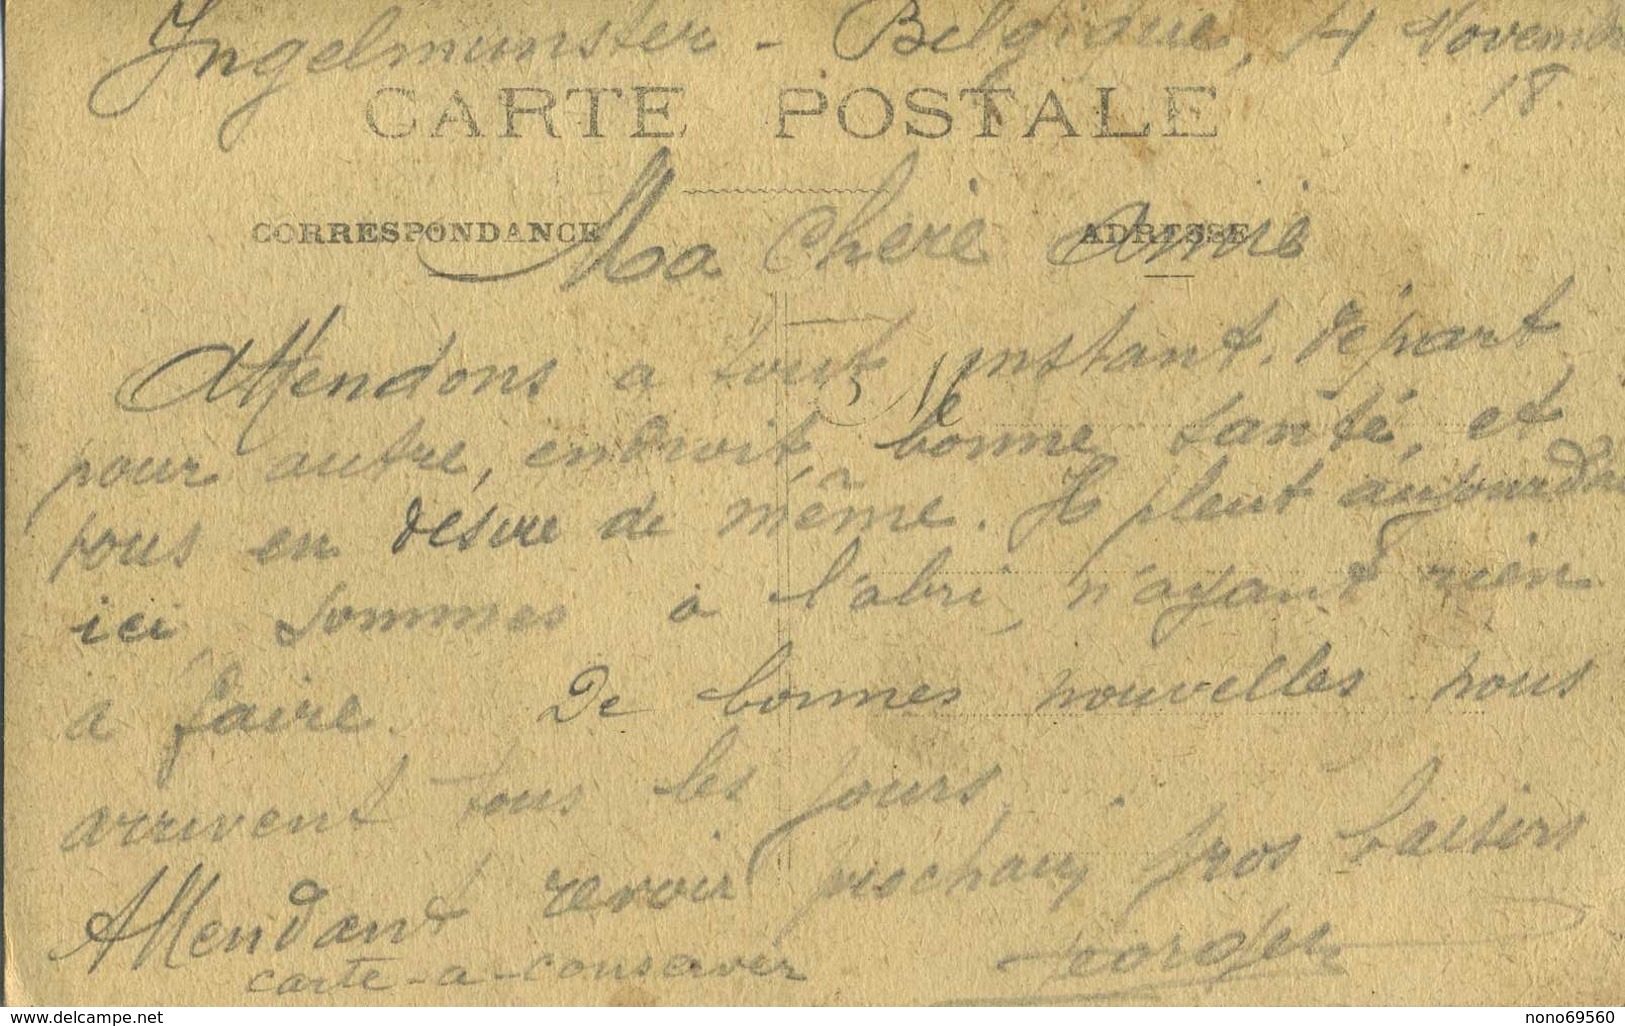 Ingelmunster - Belgique, 14 Novembre
18.
CARTE POSTALE
CORRESPONDANCE
ADRESSE
Ma Cherie Amie
Attendons a tout instant, départ
pour autre, endroit bonne santé, et
vous en desire de même. Il pleut aujourd'hui
ici sommes à l'abri, n'ayant rien
a faire. De bonnes nouvelles nous
arrivent tous les jours,
Attendant revoir prochain, gros baisers
carte-a-conserver
Georges
www.delcampe.net
nono69560